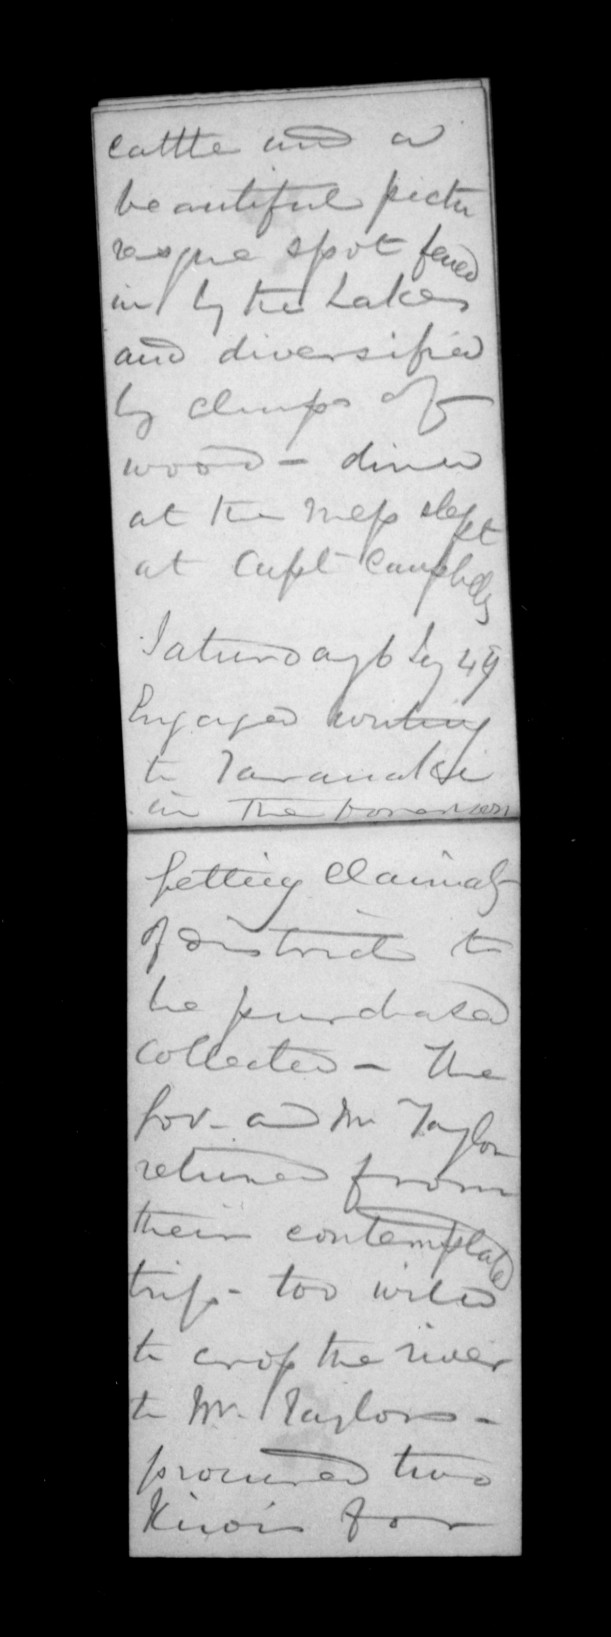 cattle and a
beautiful pictu
resque spot fenced
in by the Lakes
and diversified
by clumps of
wood - dined
at the Mess slept
at Capt Campbells
Saturday 6 49
Engaged writing
to Taranaki
in The
getting Claimants
of districts to
be purchased
Collected - The
Gov. and Mr Taylor
returned from
their contemplated
trip - too wild
to cross the river
to Mr. Taylors -
procured two
Kiwis for